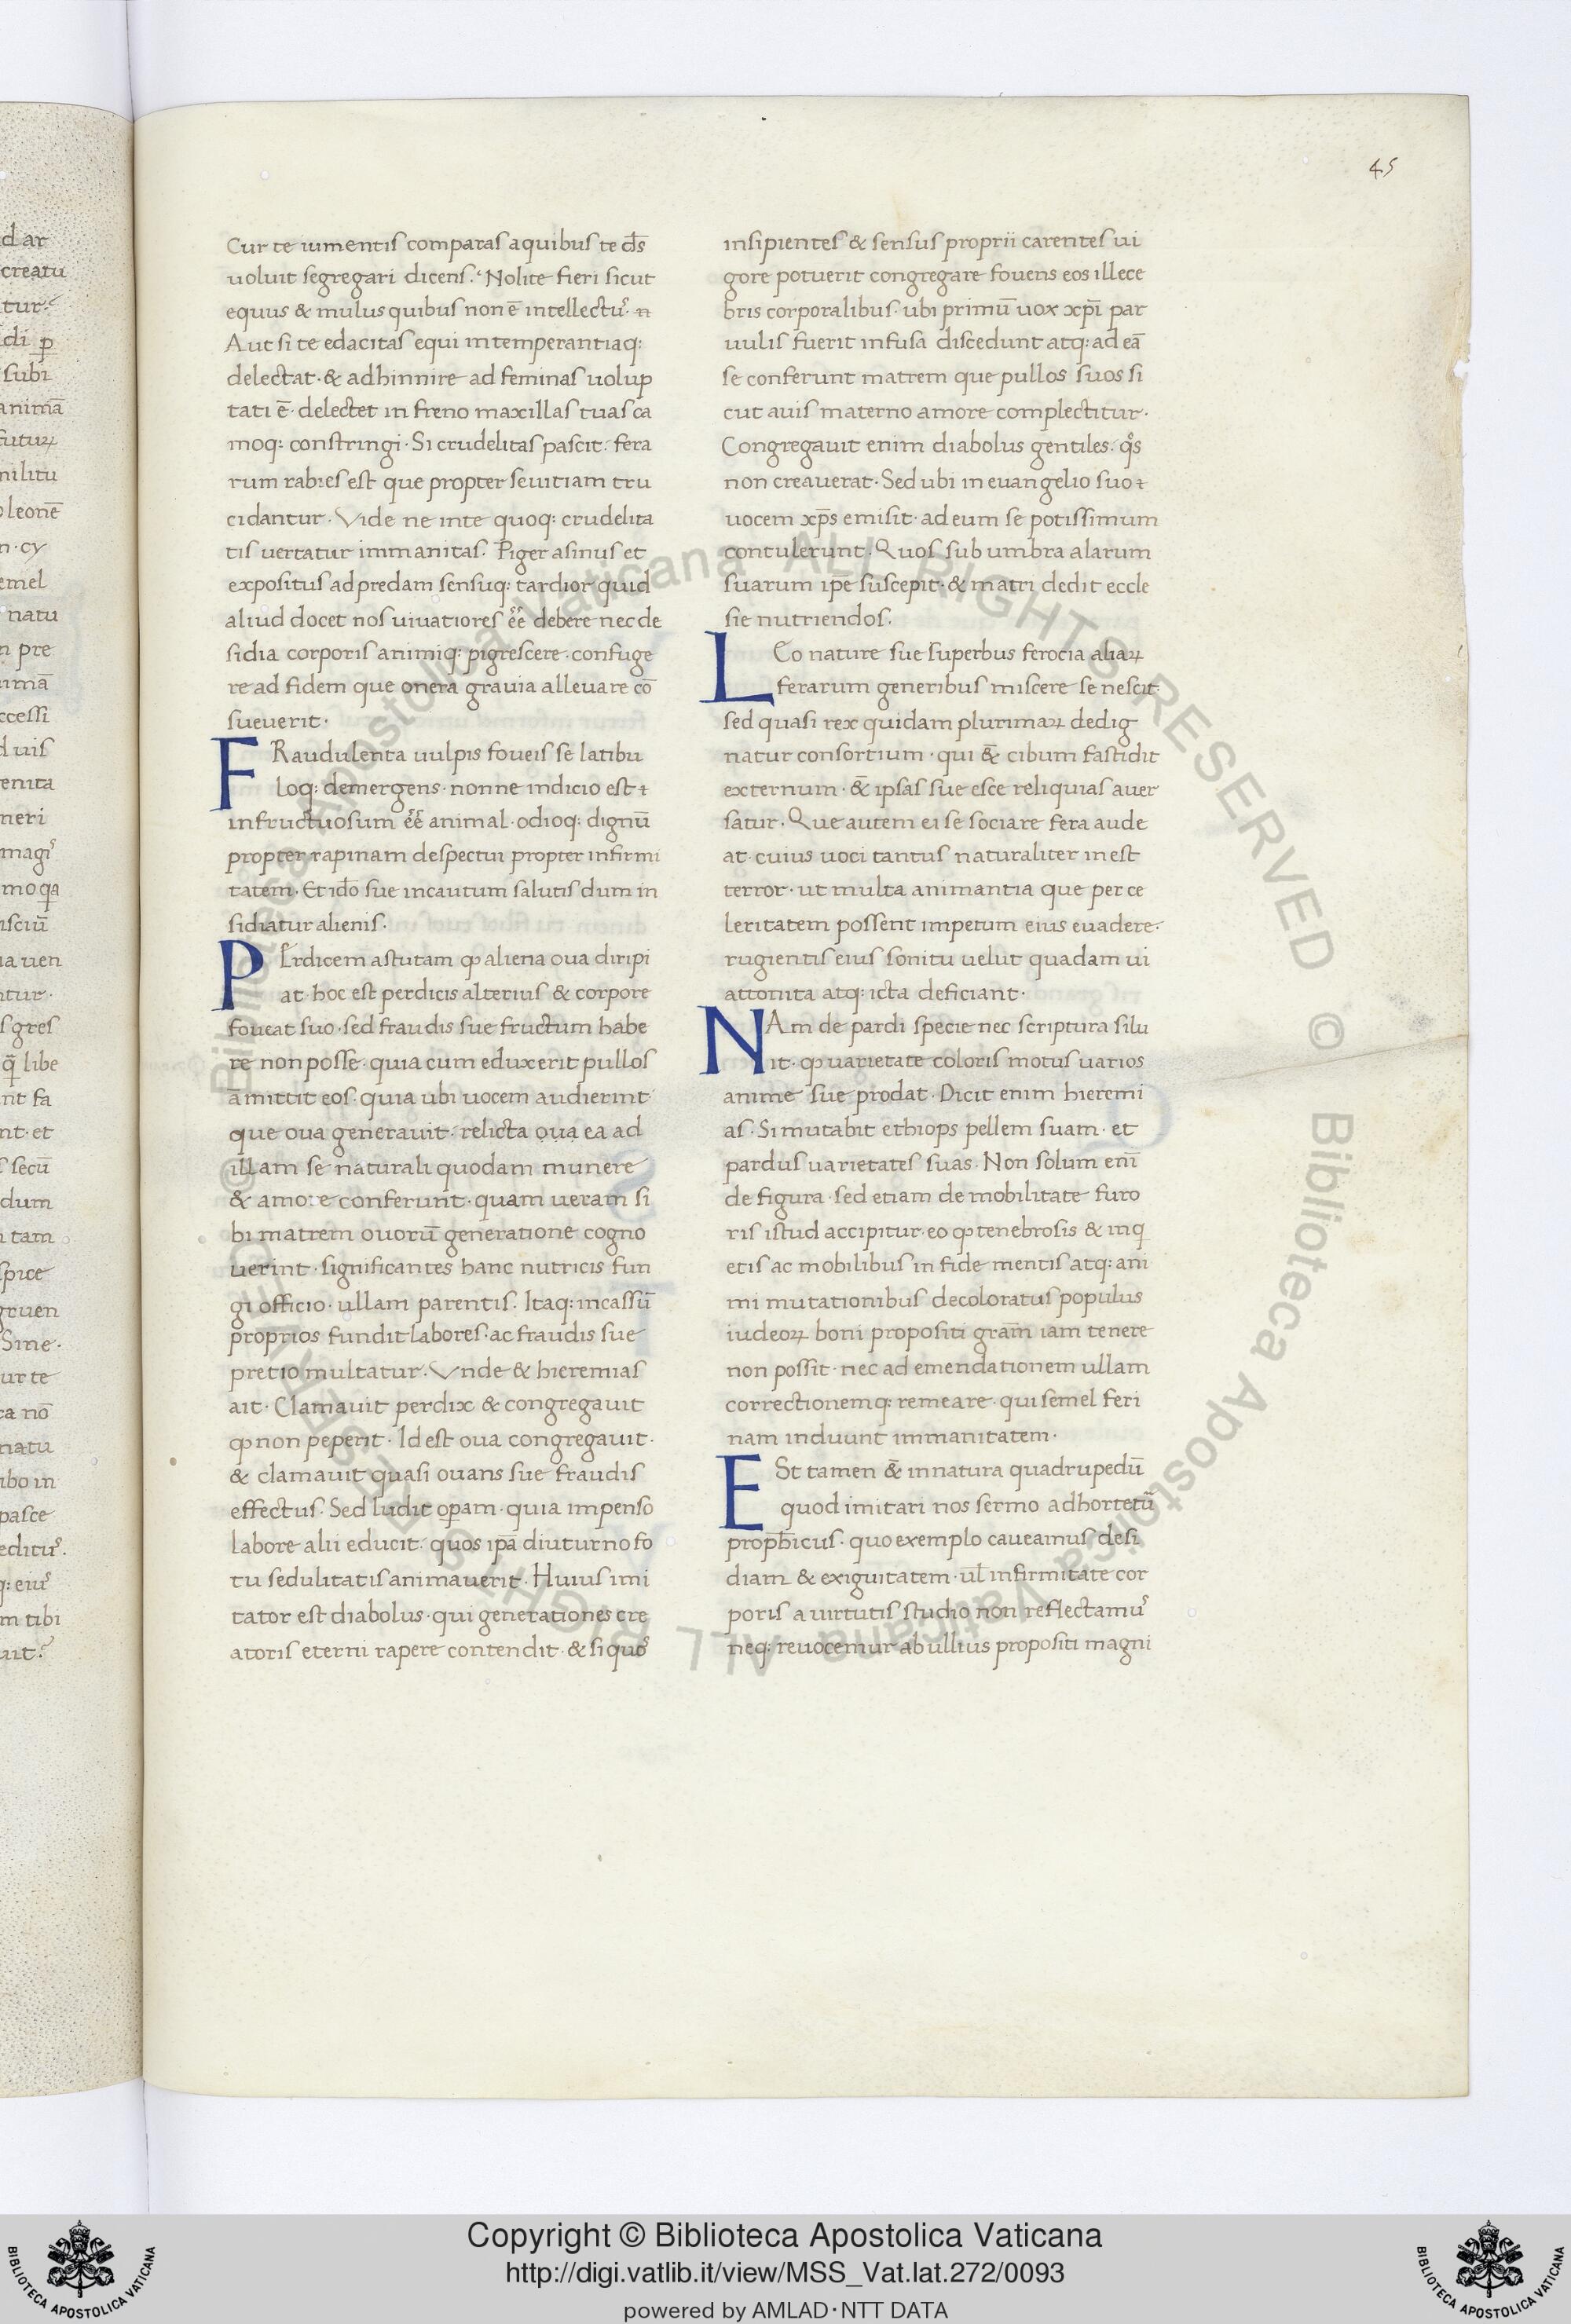 45
Cur te iumentis comparas a quibus te ds̄
uoluit segregari dicens. Nolite fieri sicut
equus & mulus quibus non ē intellectꝰ.
Aut si te edacitas equi intemperantiaq:
delectat · & adhinnire ad feminas uolup
tati ē · delectet in freno maxillas tuas ca
moq: constringi · Si crudelitas pascit: fera
rum rabies est que propter seuitiam tru
cidantur · Vide ne in te quoq: crudelita
tis uertatur immanitas. Piger asinus et
expositus ad predam sensuq: tardior quid
aliud docet nos uiuatiores ēē debere nec de
sidia corporis animiq: pigrescere · confuge
re ad fidem que onera grauia alleuare cō
sueuerit ·
FRaudulenta uulpis foueis se latibu
loq: demergens · nonne indicio est
infructuosum ēē animal · odioq: dignū
propter rapinam despectui propter infirmi
tatem · Et idō sue incautum salutis dum in
sidiatur alienis ·
PErdicem astutam ꝙ aliena oua diripi
at · hoc est perdicis alterius & corpore
foueat suo · sed fraudis sue fructum habe
re non posse · quia cum eduxerit pullos
amittit eos · quia ubi uocem audierint
que oua generauit · relicta oua ea ad
illam se naturali quodam munere
& amore conferunt · quam ueram si
bi matrem ouorū generatione cogno
uerint · significantes hanc nutricis fun
gi officio · ullam parentis. Itaq: incassū
proprios fundit labores · ac fraudis sue
pretio multatur · Vnde & hieremias
ait · Clamauit perdix & congregauit
ꝙ non peperit · Id est oua congregauit ·
& clamauit quasi ouans sue fraudis
effectus · Sed ludit oꝑam · quia impenso
labore alii educit · quos ipā diuturno fo
tu sedulitatis animauerit · Huius imi
tator est diabolus · qui generationes cre
atoris eterni rapere contendit · & si quoꝰ
insipientes & sensus proprii carentes ui
gore potuerit congregare fouens eos illece
bris corporalibus · ubi primū uox xp̄i par
uulis fuerit infusa discedunt atq: ad eā
se conferunt matrem que pullos suos si
cut auis materno amore complectitur ·
Congregauit enim diabolus gentiles · qͦs
non creauerat · Sed ubi in euangelio suo
uocem xp̄s emisit · ad eum se potissimum
contulerunt · Quos sub umbra alarum
suarum ip̄e suscepit · & matri dedit eccle
sie nutriendos.
LEo nature sue superbus ferocia aliaꝝ
ferarum generibus miscere se nescit ·
sed quasi rex quidam plurimaꝝ dedig
natur consortium · qui & cibum fastidit
externum · & ipsas sue esce reliquias auer
satur · Que autem ei se sociare fera aude
at · cuius uoci tantus naturaliter inest
terror · ut multa animantia que per ce
leritatem possent impetum eius euadere ·
rugientis eius sonitu uelut quadam ui
attonita atq: icta deficiant ·
NAm de pardi specie nec scriptura silu
it · ꝙ uarietate coloris motus uarios
anime sue prodat · Dicit enim hieremi
as · Si mutabit ethiops pellem suam · et
pardus uarietates suas · Non solum enī
de figura · sed etiam de mobilitate furo
ris istud accipitur · eo ꝙ tenebrosis & inq
etis ac mobilibus in fide mentis atq: ani
mi mutationibus decoloratus populus
iudeoꝝ boni propositi gram̄ iam tenere
non possit · nec ad emendationem ullam
correctionemq: remeare · qui semel feri
nam induunt immanitatem ·
ESt tamen & in natura quadrupedū
quod imitari nos sermo adhortetū
proph̄icus · quo exemplo caueamus desi
diam & exiguitatem · ul̄ infirmitate cor
poris a uirtutis studio non reflectamꝰ
neq: reuocemur ab ullius propositi magni
Copyright © Biblioteca Apostolica Vaticana
http://digi.vatlib.it/view/MSS_Vat.lat.272/0093
powered by AMLAD · NTT DATA